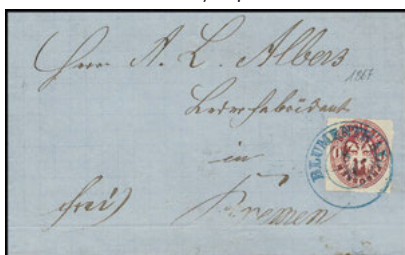 Herrn A. L. Albers
1867
Lederfabrikant
in
BLUMENTHAL
frei)
Bremen